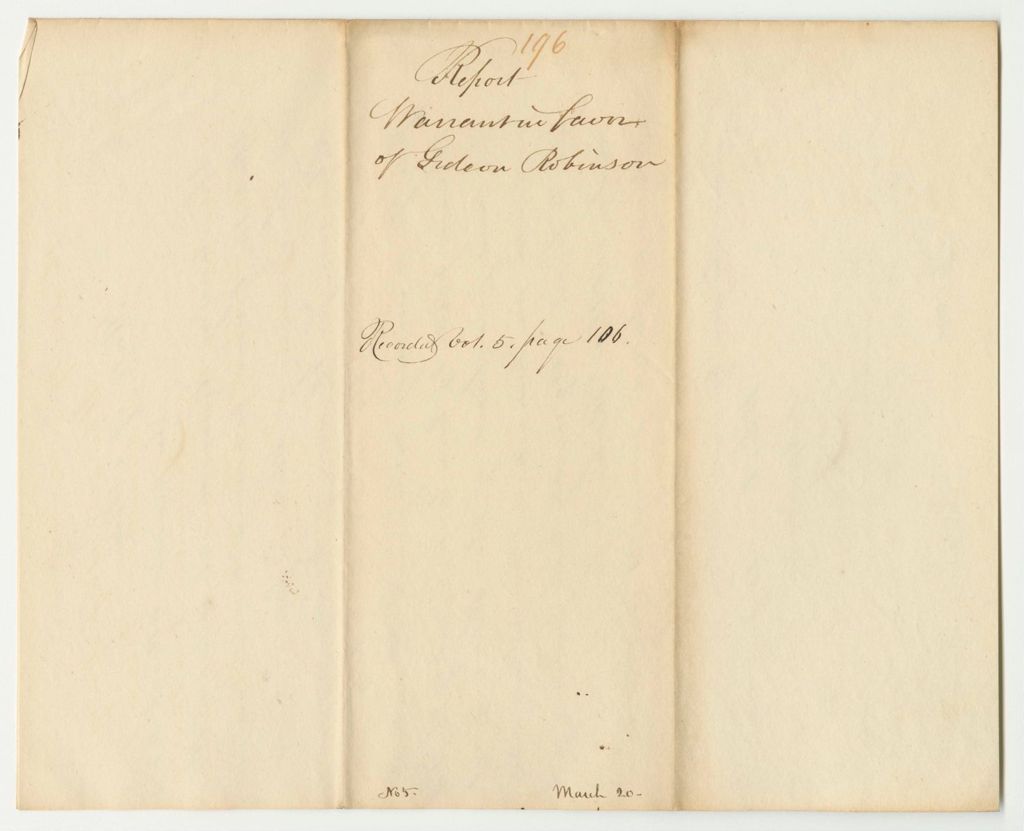 196
Report
Warrant in favor
of Gideon Robinson
Recorded Vol. 5. page 106.
No 5.
March 20-